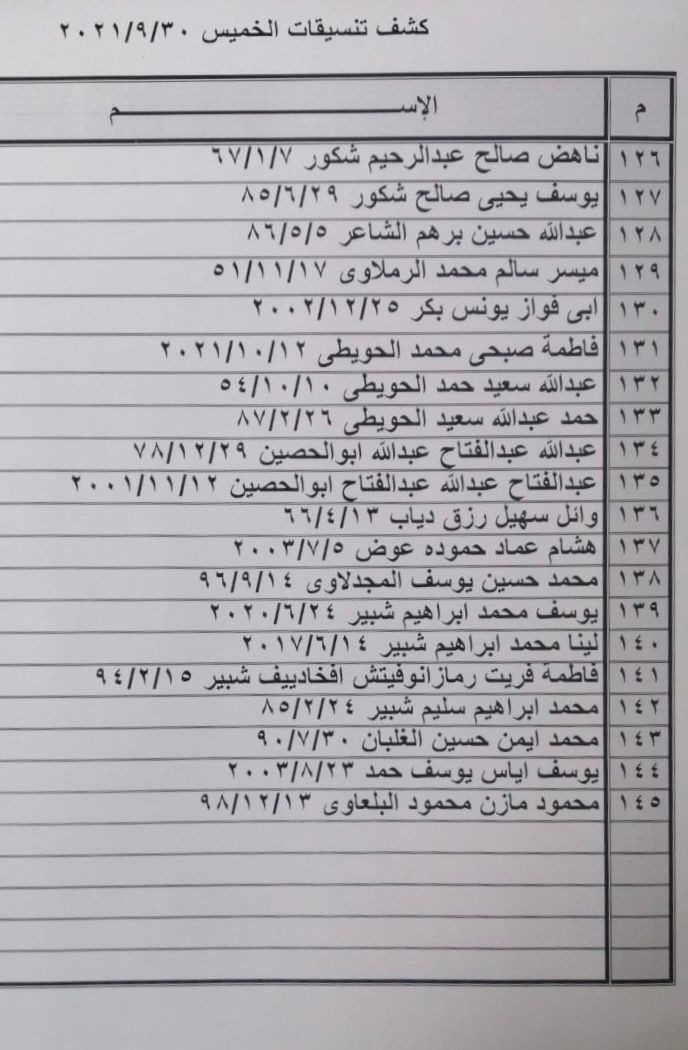 كشف تنسيقات الخميس ٢٠٢١/٩/٣٠
م الإســـــــم
١٢٦ ناهض صالح عبدالرحيم شكور ٦٧/١/٧
١٢٧ يوسف يحيى صالح شكور ٨٥/٦/٢٩
١٢٨ عبدالله حسين برهم الشاعر ٨٦/٥/٥
١٢٩ ميسر سالم محمد الرملاوى ٥١/١١/١٧
١٣٠ ابى فواز يونس بكر ٢٠٠٢/١٢/٢٥
١٣١ فاطمة صبحى محمد الحويطى ٢٠٢١/١٠/١٢
١٣٢ عبدالله سعيد حمد الحويطى ٥٤/١٠/١٠
١٣٣ حمد عبدالله سعيد الحويطى ٨٧/٢/٢٦
١٣٤ عبدالله عبدالفتاح عبدالله ابوالحصين ٧٨/١٢/٢٩
١٣٥ عبدالفتاح عبدالله عبدالفتاح ابوالحصين ٢٠٠١/١١/١٢
١٣٦ وائل سهيل رزق دياب ٦٦/٤/١٣
١٣٧ هشام عماد حموده عوض ٢٠٠٣/٧/٥
١٣٨ محمد حسين يوسف المجدلاوى ٩٦/٩/١٤
١٣٩ يوسف محمد ابراهيم شبير ٢٠٢٠/٦/٢٤
١٤٠ لينا محمد ابراهيم شبير ٢٠١٧/٦/١٤
١٤١ فاطمة فريت رمازانوفيتش افخادييف شبير ٩٤/٢/١٥
١٤٢ محمد ابراهيم سليم شبير ٨٥/٢/٢٤
١٤٣ محمد ايمن حسين الغلبان ٩٠/٧/٣٠
١٤٤ يوسف اياس يوسف حمد ٢٠٠٣/٨/٢٣
١٤٥ محمود مازن محمود البلعاوى ٩٨/١٢/١٣